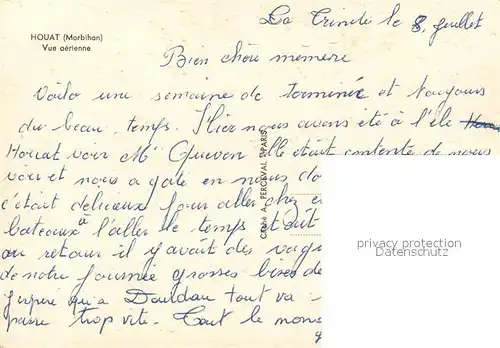 HOUAT (Morbihan)
Vue aérienne
La Trinité le 8 Juillet
Bien chère mémère
Voila une semaine de terminée et toujours
du beau temps. Hier nous avons été à l'île
Houat voir Me Guevon elle était contente de nous
voir et nous a gaté en nous do
c'était délicieux pour aller chez e
bateaux à l'aller le temps était
au retour il y avait des vagu
de notre journée grosses bises de
J'espère qu'a Douldan tout va
passe trop vite. Tout le mons
Cliché A. PERCEVAL PARIS
privacy protection
Datenschutz